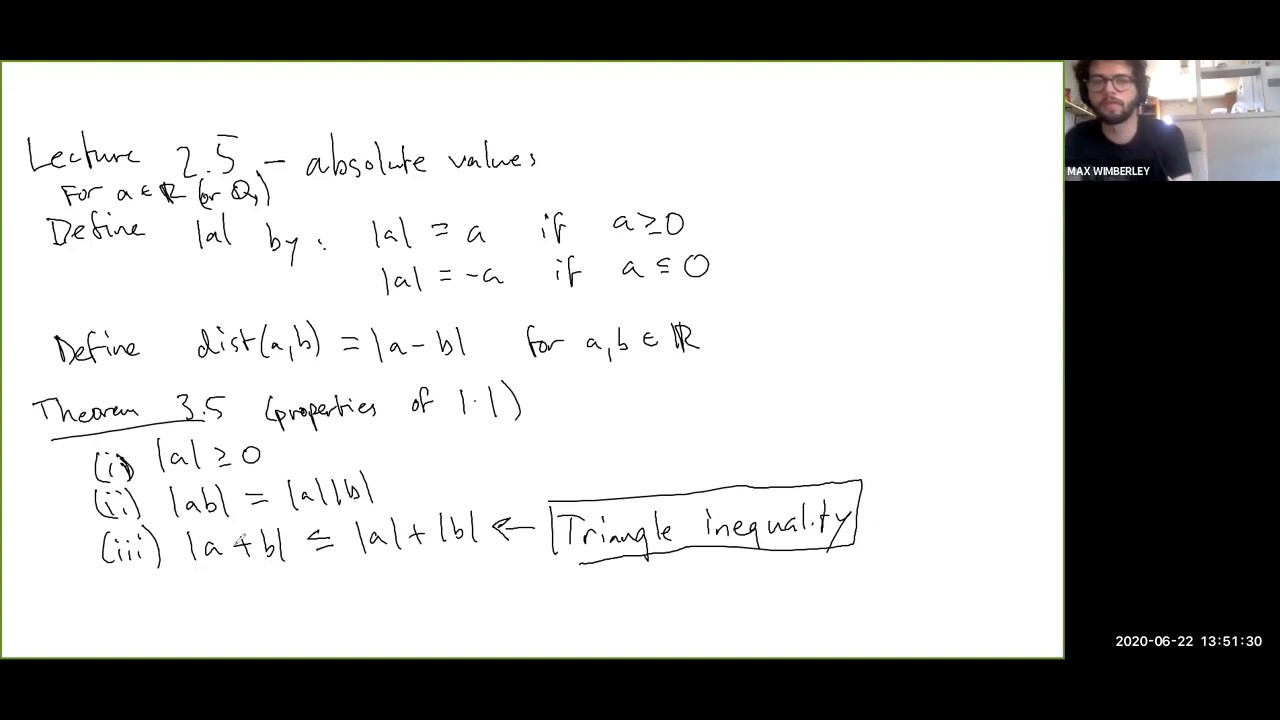 Lecture 2.5 - absolute values
For a ∈ ℝ (or ℚ)
Define |a| by: |a| = a if a ≥ 0
|a| = -a if a ≤ 0
Define dist(a,b) = |a-b| for a,b ∈ ℝ
Theorem 3.5 (properties of |·|)
(i) |a| ≥ 0
(ii) |ab| = |a||b|
(iii) |a+b| ≤ |a|+|b| ← Triangle inequality
MAX WIMBERLEY
2020-06-22 13:51:30